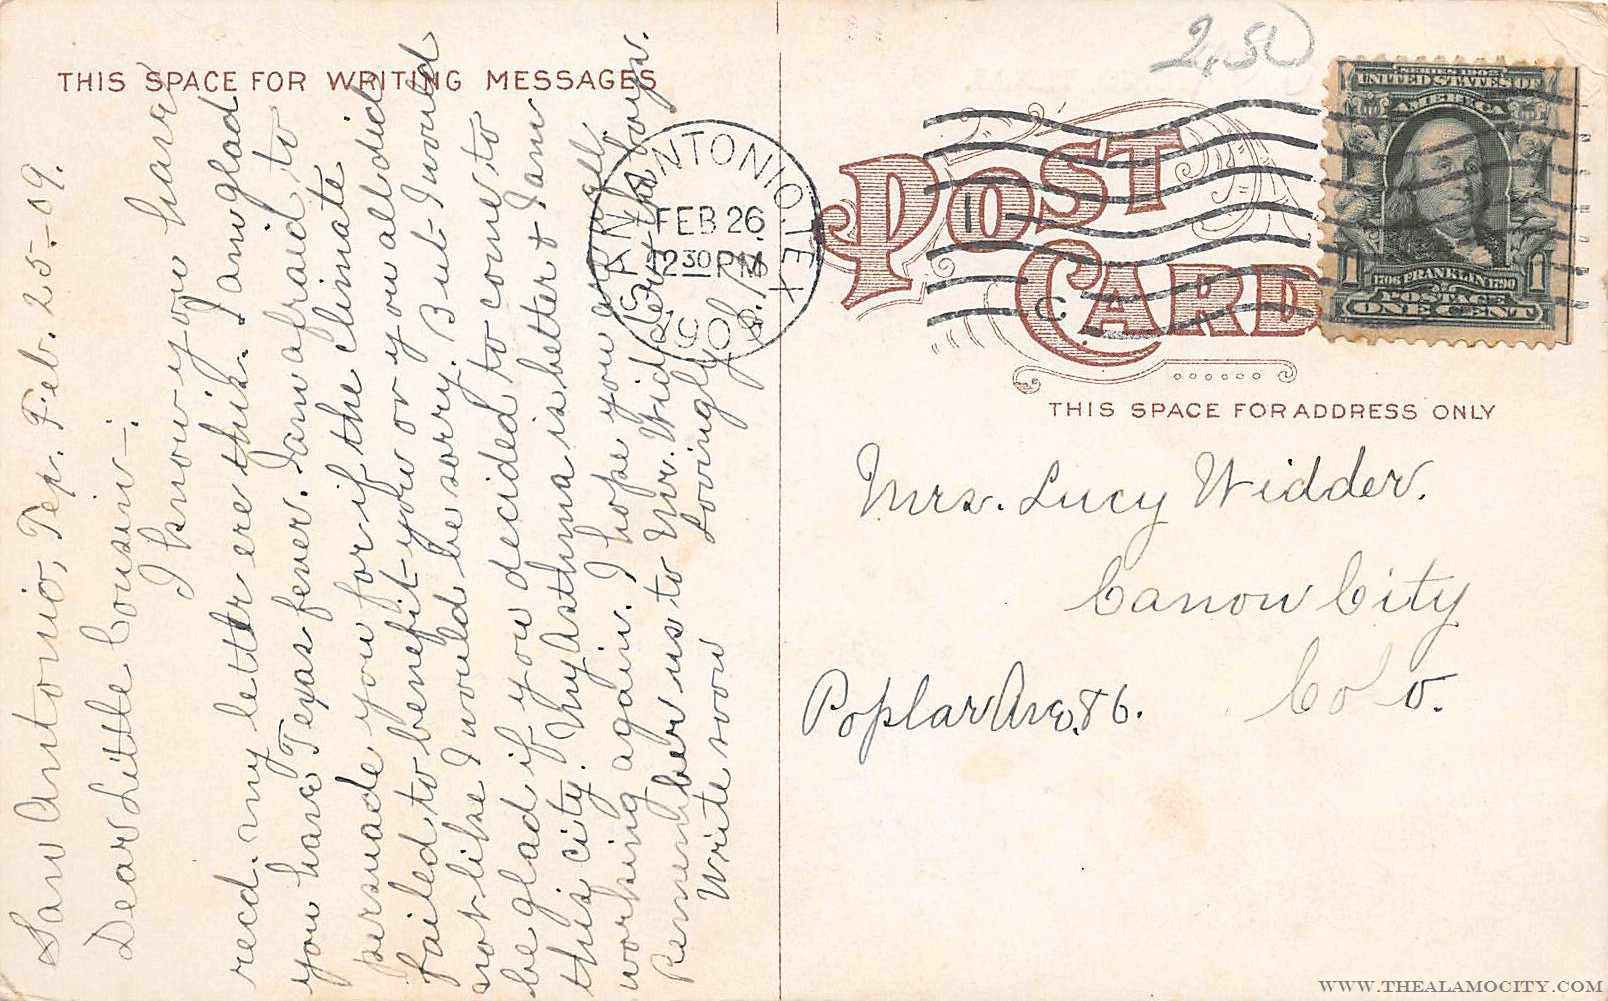 THIS SPACE FOR WRITING MESSAGES
San Antonio, Tex. Feb. 25-09.
Dear Little Cousin-:
I know you have
recd. my letter ere this. I am glad
you have Texas fever. I am afraid to
persuade you for if the climate
failed to benefit-you or you all did
not like I would be sorry. But I would
be glad if you decided to come to
this city. My Asthma is better & I am
working again. I hope you are all
Remember us to Mr. Widder & the boys.
Write soon Lovingly
SAN ANTONIO, TEX
FEB 26
2 30 PM
1909
2.50
POST CARD
1
C
SERIES 1902
UNITED STATES OF
AMERICA
1 1706 FRANKLIN 1790 1
POSTAGE
ONE CENT
THIS SPACE FOR ADDRESS ONLY
Mrs. Lucy Widder.
Canon City
Poplar Ave. 86. Colo.
WWW.THEALAMOCITY.COM